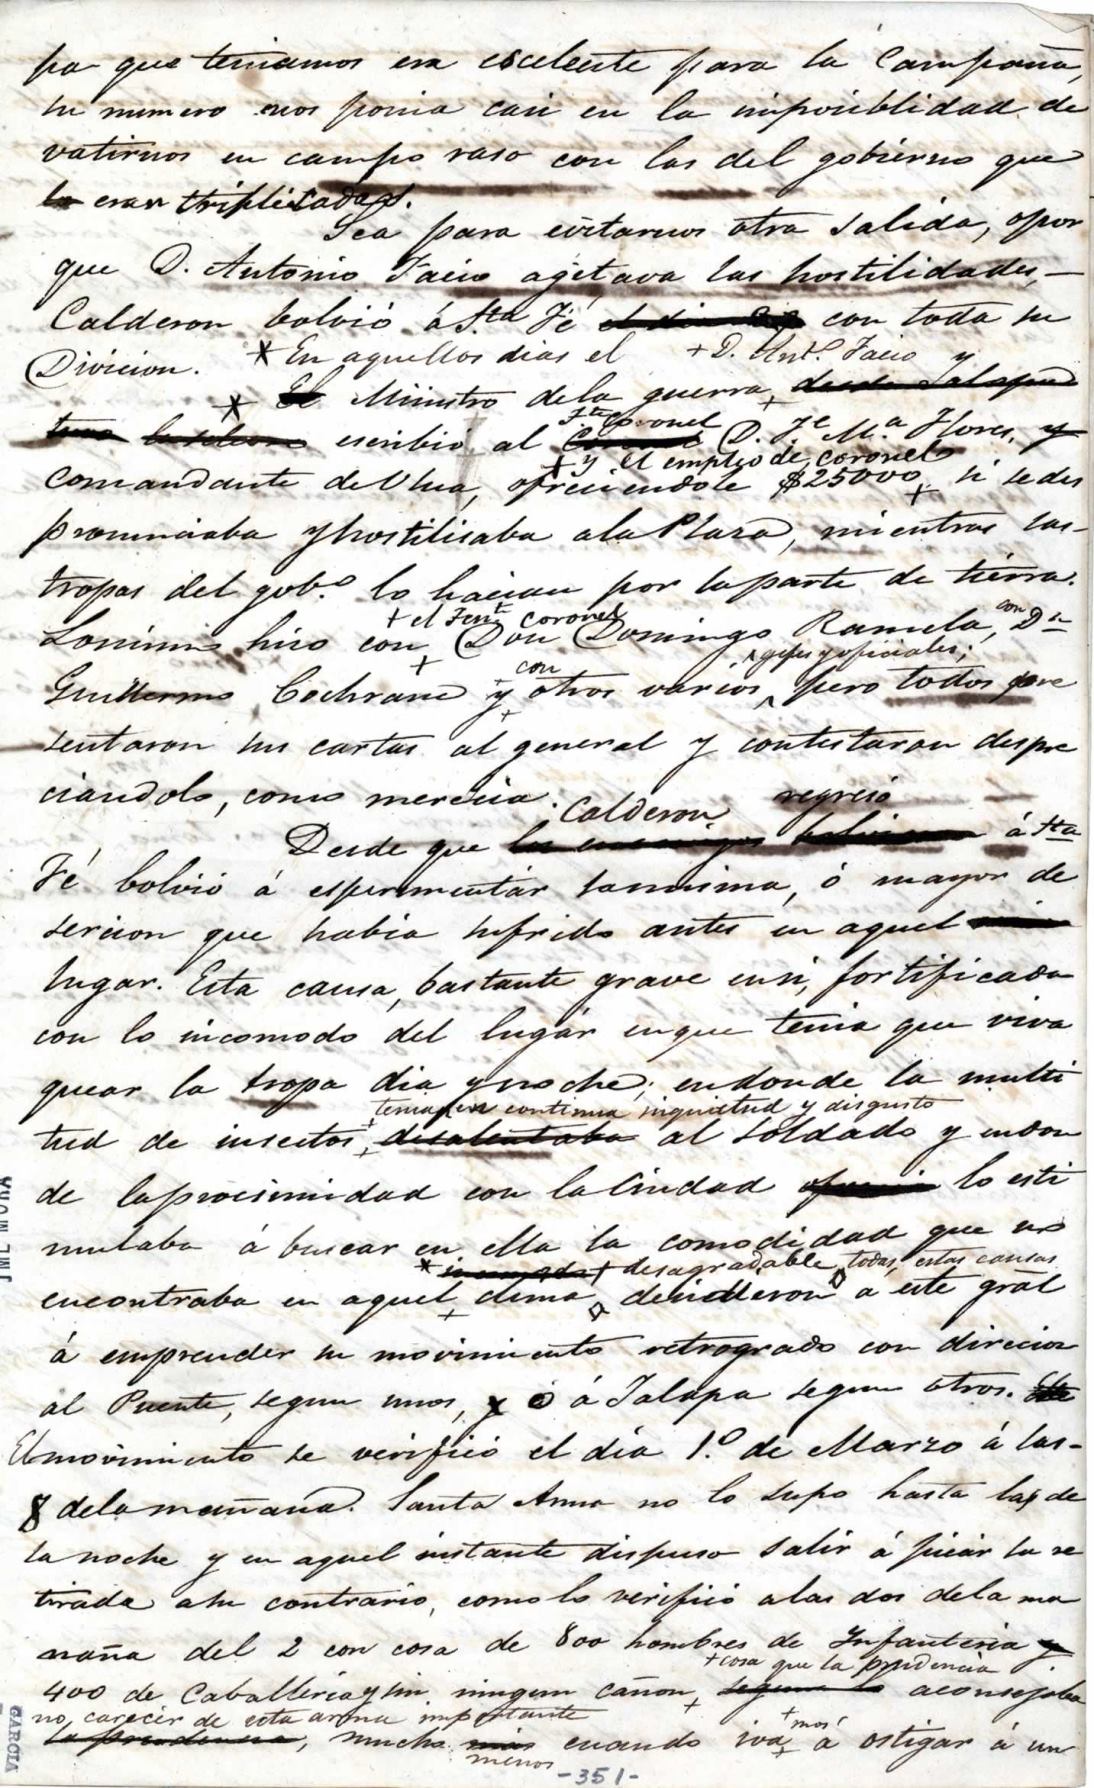 pa que teniamos era escelente para la Campaña,
su numero nos ponia casi en la imposiblidad de
vatirnos en campo raso con las del gobierno que
eran triplicadas.
Sea para evitarnos otra salida, o por
que D. Antonio Facio agitava las hostilidades,
Calderon bolvió á Sta Fé con toda su
Divicion. * En aquellos dias el + D. Antº. Facio y
* Ministro dela guerra +
escribió al Tte Coronel D. Je. Ma. Flores,
+ y el empleo de coronel
comandante de Ulua, ofreciendole $25000 + si sedes
pronunciaba y hostilisaba ala Plaza, mientras las
tropas del gobº. lo hacian por la parte de tierra.
+ el Tente coronel con
Lo mismo hiso con + Don Domingo Ramela, Dn
con gefes y oficiales;
Guillermo Cochrane y otros varios, pero todos pre
sentaron sus cartas al general y contestaron despre
ciandolo, como merecia.
Calderon regresó
Desde que á Sta
Fé bolvió á esperimentar la misma, ó mayor de
sercion que habia sufrido antes en aquel
lugar. Esta causa, bastante grave en si, fortificada
con lo incomodo del lugár en que tenia que viva
quear la tropa dia y noche; en donde la multi
tenia en continua inquietud y disgusto
tud de insectos, al soldado y endon
de la procsimidad con la Ciudad lo esti
mulaba á buscar en ella la comodidad que no
* + desagradable todas estas causas
encontraba en aquel + clima decidieron a este gral
á emprender su movimiento retrogrado con direcion
al Puente, segun unos, ó á Jalapa segun otros.
El movimiento se verificó el día 1.º de Marzo á las
8 dela mañana. Santa Anna no lo supo hasta las de
la noche y en aquel instante dispuso salir á picar la re
tirada a su contrario, como lo verificó a las dos dela ma
ñana del 2 con cosa de 800 hombres de Infanteria y
+ cosa que la prudencia
400 de Caballeria y sin ningun cañon + aconsejaba
no carecer de esta arma importante
, mucho menos cuando iva + mos á ostigar á un
-351-
JML MORA
GARCIA